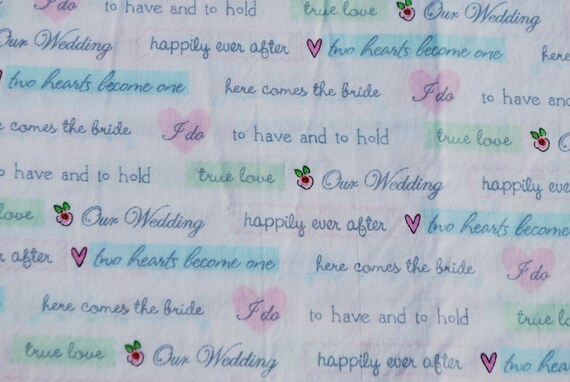 I do to have and to hold true love Our Wedding
Our Wedding happily ever after two hearts become one here
two hearts become one here comes the bride I do to have and
comes the bride I do to have and to hold true love
to hold have and true love Our Wedding happily ever
love Our Wedding happily ever after two hearts become
after two hearts become one here comes the bride I do
here comes the bride I do to have and to hold true
true love Our Wedding happily ever after two